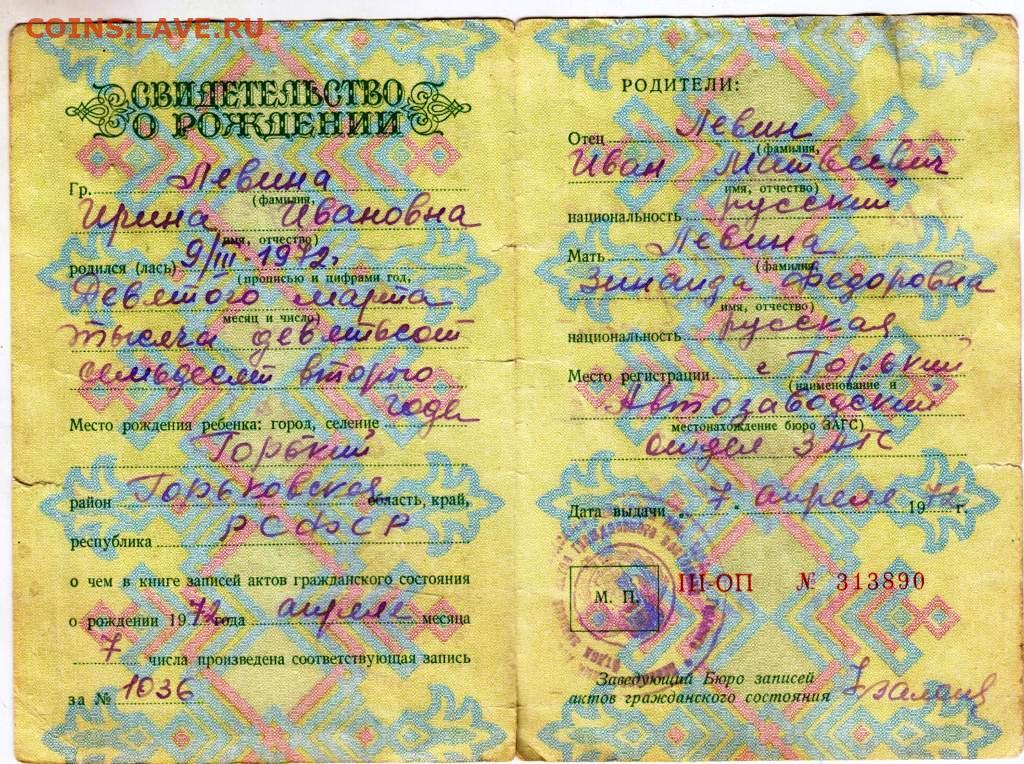 COINS.LAVE.RU
СВИДЕТЕЛЬСТВО
О РОЖДЕНИИ
Гр. Левина
(фамилия,
Ирина Ивановна
имя, отчество)
родился (лась) 9/III-1972г.
(прописью и цифрами год,
Девятого марта
месяц и число)
тысяча девятьсот
семьдесят второго
года
Место рождения ребенка: город, селение
Горький
район Горьковская область, край,
республика РСФСР
о чем в книге записей актов гражданского состояния
о рождении 1972 года апреля месяца
7 числа произведена соответствующая запись
за № 1036
РОДИТЕЛИ:
Отец Левин
(фамилия,
Иван Матвеевич
имя, отчество)
национальность русский
Мать Левина
(фамилия,
Зинаида Федоровна
имя, отчество)
национальность русская
Место регистрации г Горький
(наименование и
Автозаводский
местонахождение бюро ЗАГС)
отдел ЗАГС
Дата выдачи „7" апреля 1972 г.
М. П.
III-ОП № 313890
Заведующий Бюро записей
актов гражданского состояния